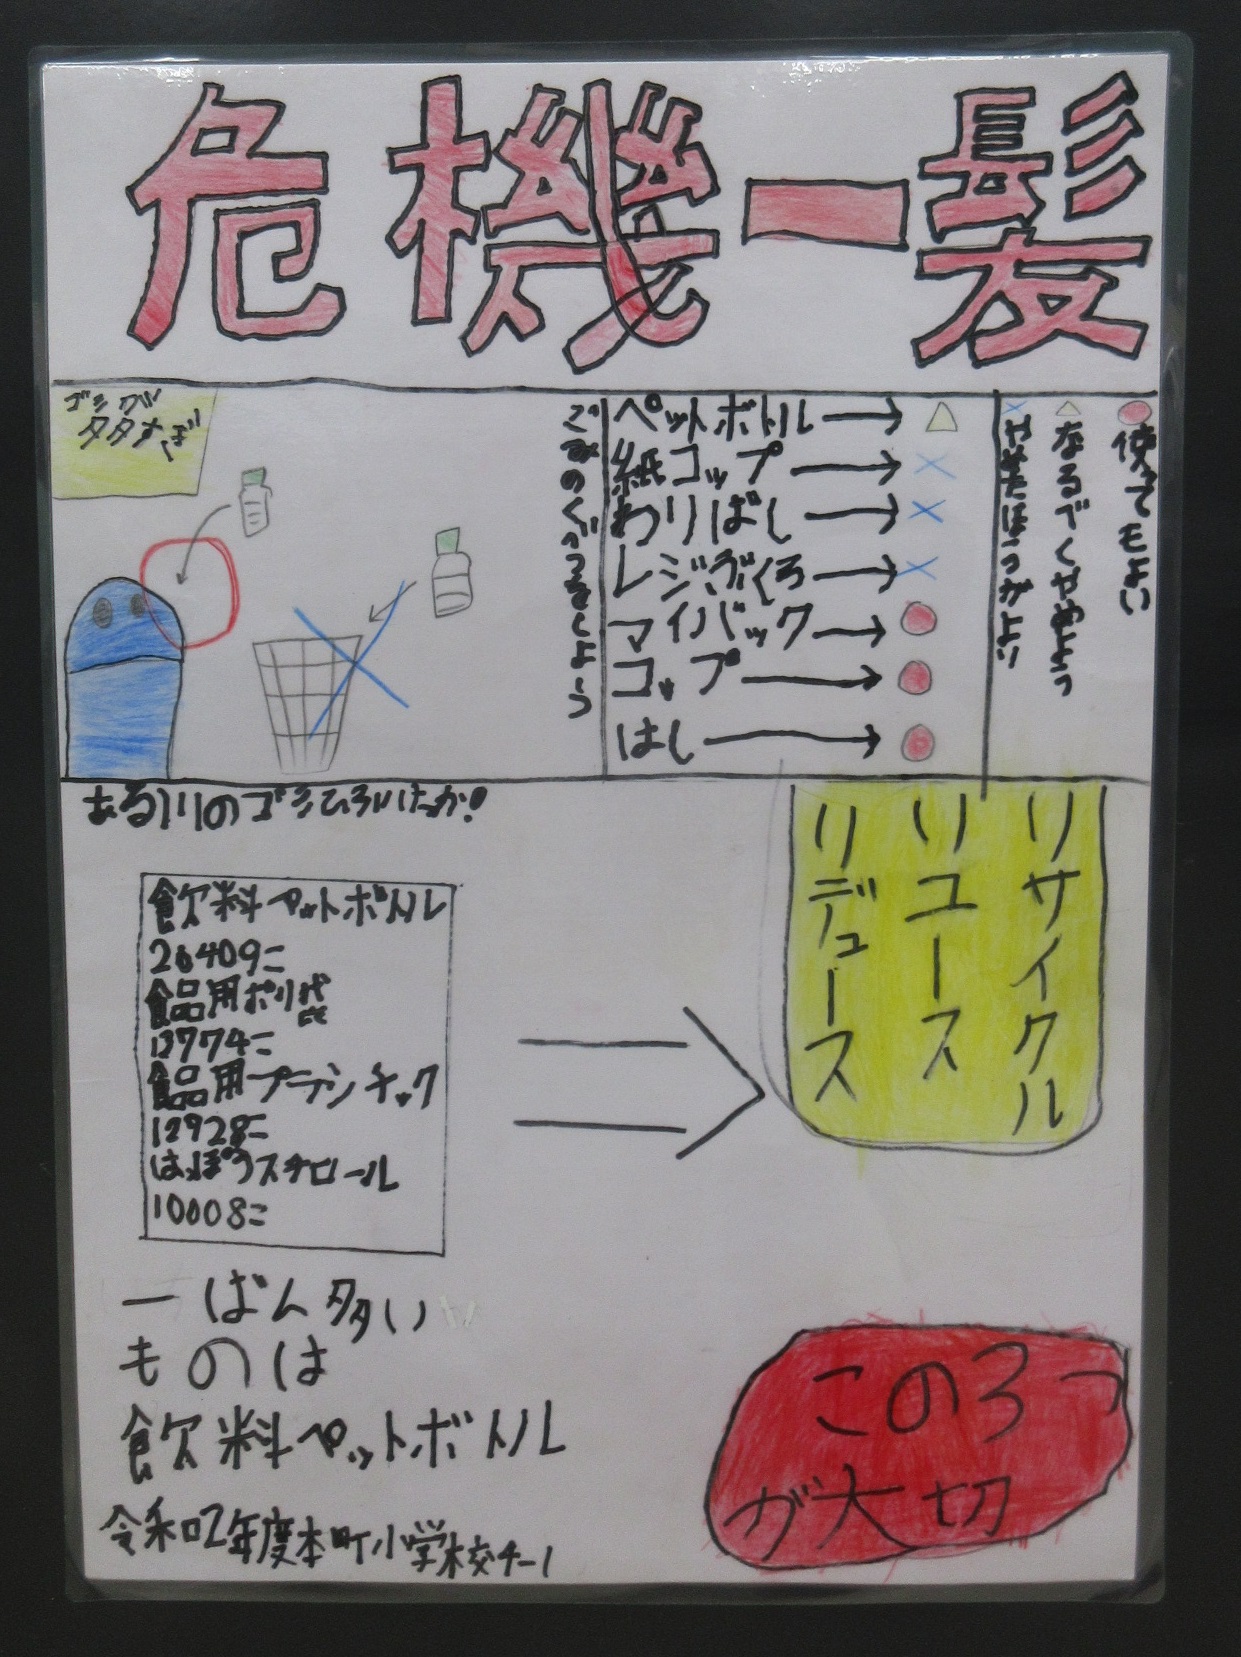 危機一髪
ゴミグツ
タタすぎ
ごみのくべつをしよう
ペットボトル→△
紙コップ→×
わりばし→×
レジぶくろ→×
マイバック→●
コップ→●
はし→●
●使ってもよい
△なるべくやめよう
×やめたほうがよい
ある川のゴミひろいけっか!
飲料ペットボトル
26409こ
食品用ポリ袋
13774こ
食品用プラシチック
12928こ
はっぽうスチロール
10008こ
リサイクル
リユース
リデュース
一ばん多い
ものは
飲料ペットボトル
この3つ
が大切
令和2年度本町小学校4-1